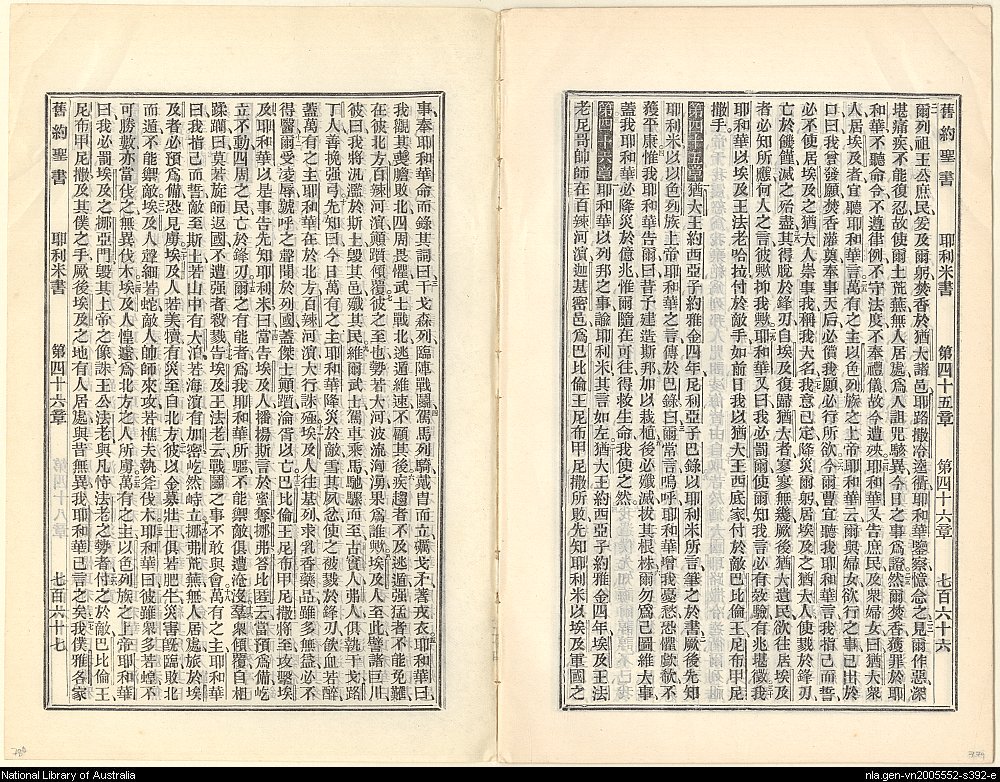 舊約聖書 耶利米書 第四十五章 第四十六章 七百六十六
爾列祖王公庶民爰及爾躬焚香於猶大諸邑耶路撒冷逵衢耶和華鑒察憶念之見爾作惡深
堪痛疾不能復忍故使爾土荒蕪無人居處為人詛咒駭異今日之事為證然爾焚香獲罪於耶
和華不聽命令不遵律例不守法度不奉禮儀故今遭殃耶和華又告庶民及衆婦女曰猶大衆
人居埃及者宜聽耶和華言萬有之主以色列族之上帝耶和華云爾與婦女欲行之事已出於
口曰我曾發願焚香灌奠奉事天后必償我願必行所欲今爾曹宜聽我耶和華言我指己而誓
必不使居埃及之猶大人崇事我稱我大名我意已定降災爾躬居埃及之猶大人必使戮於鋒刃
亡於饑饉滅之殆盡其得脫於鋒刃自埃及復歸猶大者寥寥無幾厥後猶大遺民欲往居埃及
者必知所應何人之言彼歟抑我歟耶和華又曰我必罰爾使爾知我言必有效驗有兆堪徵我
耶和華以埃及王法老哈拉付於敵手如前日我以猶大王西底家付於敵巴比倫王尼布甲尼
撒手
第四十五章猶大王約西亞子約雅金四年尼利亞子巴錄以耶利米所言筆之於書厥後先知
耶利米以以色列族上帝耶和華之言傳於巴錄曰爾常言嗚呼耶和華增我憂愁恐懼歎欷不
獲平康惟我耶和華告爾曰昔予建造斯邦加以栽植後必殲滅拔其根株爾勿為己圖維大事
蓋我耶和華必降災於億兆惟爾隨在可往得救生命我使之然
第四十六章耶和華以列邦之事諭耶利米其言如左猶大王約西亞子約雅金四年埃及王法
老尼哥師師在百辣河濱迦基密邑為巴比倫王尼布甲尼撒所敗先知耶利米以埃及軍國之
事奉耶和華命而錄其詞曰干戈森列臨陣戰鬬駕馬列騎戴冑而立厲戈矛著戎衣耶和華曰
我觀其奠贍敗北四周畏懼武士戰北逃遁維速不顧其後疾趨者不及逃遁强猛者不能免難
在彼北方百辣河濱顚躓傾覆彼之至也勢若大河波流洶湧果為誰歟埃及人至此譬諸巨川
彼曰我將汎濫於斯土毀其邑殲其民維爾武士駕車乘馬馳驟而至古實人弗人俱執干戈路
丁人善挽强弓先知曰今日萬有之主耶和華降災於敵雪其夙忿使之被戮於鋒刃飲血若醉
蓋萬有之主耶和華在於北方百辣河濱大行誅殛埃及人往基列求乳香藥品雖多無益必不
得醫爾受凌辱號呼之聲聞於列國蓋傑士顚躓淪胥以亡巴比倫王尼布甲尼撒將至攻擊埃
及耶和華以是事告先知耶利米曰當告埃及人播揚斯言於密奪挪弗答比匿云當預為備屹
立不動四周之民亡於鋒刃爾之有能者為我耶和華所驅不能禦敵俱遭淹沒羣衆傾覆自相
蹂躙曰莫若旋師返國不遭强者殺戮告埃及王法老云戰鬬之事不敢與會萬有之主耶和華
曰我指己而誓敵至斯土若山中有大泊若海濱有加密屹然峙立挪弗荒蕪無人居處旅於埃
及者必預為備恐見虜埃及人若美犢有災至自北方彼以金募壯士俱若肥牛災害旣臨敗北
而遁不能禦敵埃及人聲細若蛇敵人帥師來攻若樵夫執斧伐木耶和華曰彼雖衆多若蝗不
可勝數亦當伐之無異伐木埃及人惶遽為北方之人所虜萬有之主以色列族之上帝耶和華
曰我必罰埃及之挪亞門毀其上帝之像誅王公法老與凡恃法老之勢者付之於敵巴比倫王
尼布甲尼撒及其僕之手厥後埃及之地有人居處與昔無異我耶和華已言之矣我僕雅各家
舊約聖書 耶利米書 第四十六章 七百六十七
National Library of Australia
nla.gen-vn2005552-s392-e